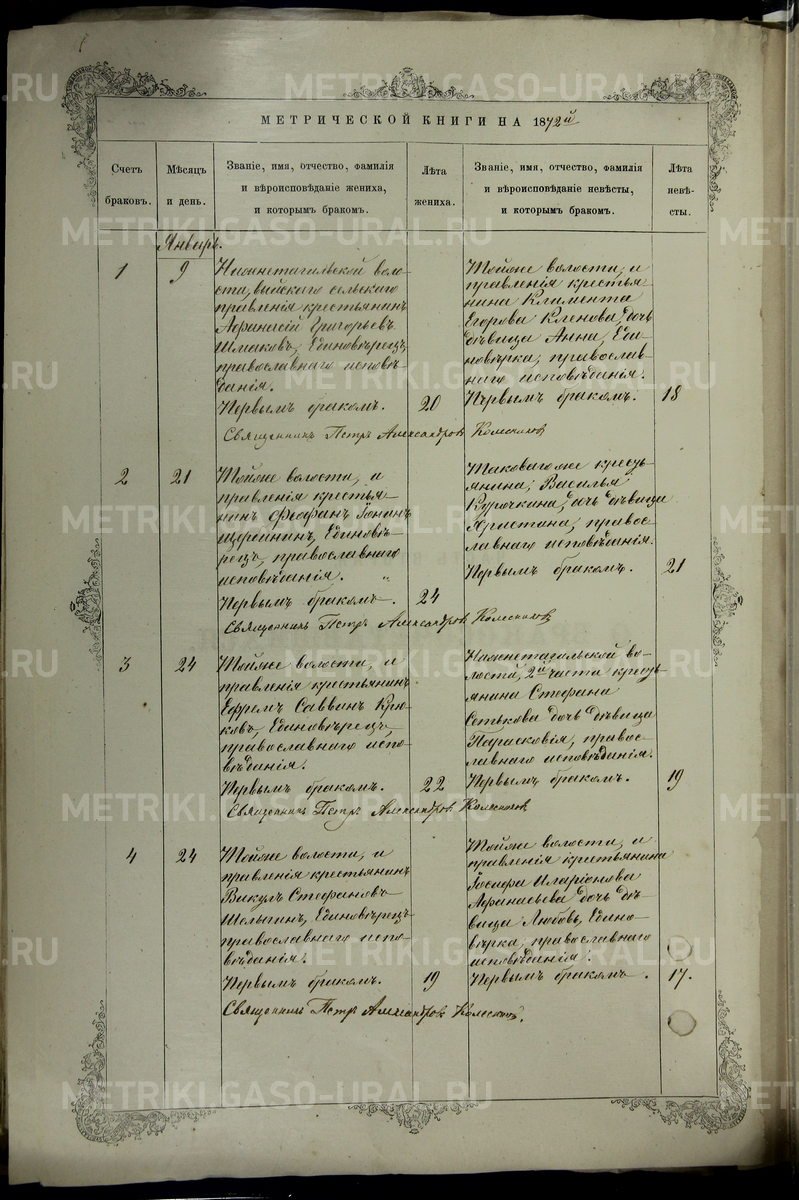 МЕТРИЧЕСКОЙ КНИГИ НА 1872й
Счетъ браковъ.
Мѣсяцъ и день.
Званіе, имя, отчество, фамилія
и вѣроисповѣданіе жениха,
и которымъ бракомъ.
Лѣта жениха.
Званіе, имя, отчество, фамилія
и вѣроисповѣданіе невѣсты,
и которымъ бракомъ.
Лѣта невѣ-
сты.
Январь.
1
9
Нижнетагильской воло-
сти, війскаго сельскаго
правленія крестьянинъ
Афанасій Григорьевъ
Шмаковъ, Единовѣрецъ,
православнаго исповѣ-
данія.
Первымъ бракомъ.
20
Тойже волости, и
правленія крестья-
нина Климента
Егорова Кленова, дочь
дѣвица Анна, Еди-
новѣрка, православ-
наго исповѣданія.
Первымъ бракомъ.
18
Священникъ Петръ Александровъ
2
21
Тойже волости, и
правленія крестья-
нинъ Фьофанъ
Единовѣ-
рецъ, православнаго
исповѣданія.
Первымъ бракомъ.
24
Таковагоже кресть-
янина, Василья
Курочкина, дочь дѣвица
Христина, правос-
лавнаго исповѣданія.
Первымъ бракомъ.
21
Священникъ Петръ Александровъ
3
24
Тойже волости, и
правленія крестьянинъ
Ефремъ Саввинъ Крю-
ковъ, Единовѣрецъ,
православнаго испо-
вѣданія.
Первымъ бракомъ.
22
Нижнетагильской во-
лости, 2й части кресть-
янина Стефана
дочь дѣвица
Парасковія, правос-
лавнаго исповѣданія.
Первымъ бракомъ.
19
Священникъ Петръ Александровъ
4
24
Тойже волости, и
правленія крестьянинъ
Викулъ Стефановъ
Единовѣрецъ
православнаго испо-
вѣданія.
Первымъ бракомъ.
19
Тойже волости, и
правленія крестьянина
Іосифа Иларіонова
Афанасьева дочь дѣ-
вица Любовь, Едино-
вѣрка, православнаго
исповѣданія.
Первымъ бракомъ.
17.
Священникъ Петръ Александровъ
METRIKI.GASO-URAL.RU